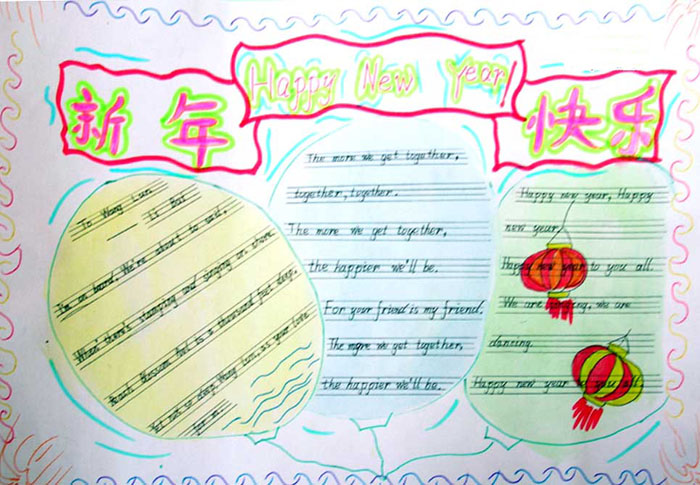 新年
Happy New Year
快乐
To Wang Lun
—— Li Bai
I'm on board. We're about to sail,
When there's stamping and singing on shore.
Peach Blossom Pool is a thousand feet deep,
Yet not so deep, Wang Lun, as your love
for me.
The more we get together,
together, together.
The more we get together,
the happier we'll be.
For your friend is my friend.
The more we get together,
the happier we'll be.
Happy new year, Happy
new year.
Happy new year to you all.
We are singing, we are
dancing.
Happy new year to you all.